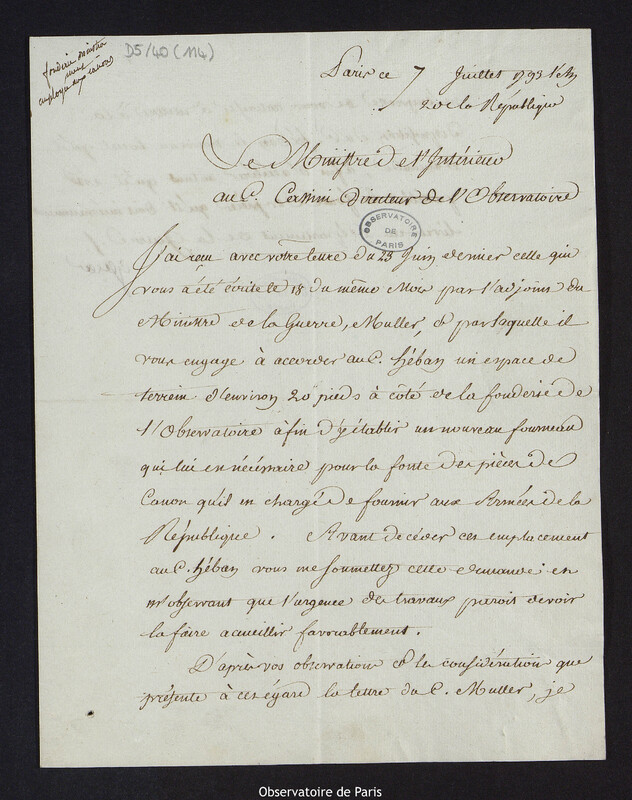 D5/40 (114)
Paris ce 7 Juillet 1793 l'an
2 de la République
Le Ministre de l'Intérieur
au C. Cassini Directeur de l'Observatoire
OBSERVATOIRE
DE
PARIS
J'ai reçu avec votre lettre du 25 Juin dernier celle qui
vous a été écrite le 18 du même Mois par l'adjoint du
Ministre de la Guerre, Muller, & par laquelle il
vous engage à accorder au C. Héban un espace de
terrein d'environ 20 pieds à côté de la fonderie de
l'Observatoire afin d'y établir un nouveau fourneau
qui lui est nécessaire pour la fonte des pièces de
Canon qu'il est chargé de fournir aux Armées de la
République. Avant de céder cet emplacement
au C. Héban vous me soumettez cette demande en
m'observant que l'urgence des travaux paroit devoir
la faire accueillir favorablement.
D'après vos observations & la considération que
présente à cet égard la lettre du C. Muller, je
Observatoire de Paris